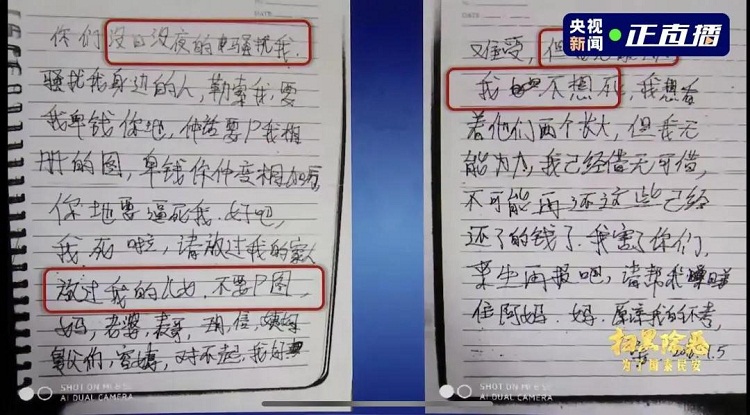 你们没日没夜的电骚扰我.
骚扰我身边的人，勒索我，要
我卑钱你地，仲话要P我相
册的图，卑钱你仲变相加房
你地要逼死我.好吧，
我死啦，请放过我的家人
放过我的儿女，不要P图，
妈，老婆，表哥，
舅父们，对不起，我好
SHOT ON MI 8 SE
AI DUAL CAMERA
央视新闻 正直播
难受，但
我 不想死，我想看
着他们两个长大，但我无
能为力，我已经借无可借，
不可能再还这些已经
还了的钱了.我害了你们，
来生再报吧，请帮我
住阿妈.妈.原谅我的不孝，
扫黑除恶
为了国泰民安
SHOT ON MI
AI DUAL CAMERA